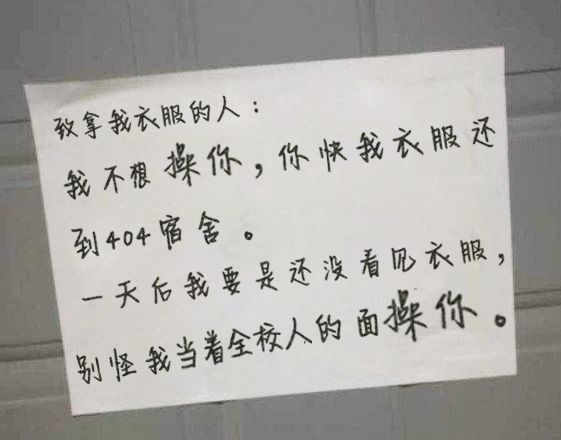 致拿我衣服的人：
我不想操你，你快我衣服还
到404宿舍。
一天后我要是还没看见衣服，
别怪我当着全校人的面操你。